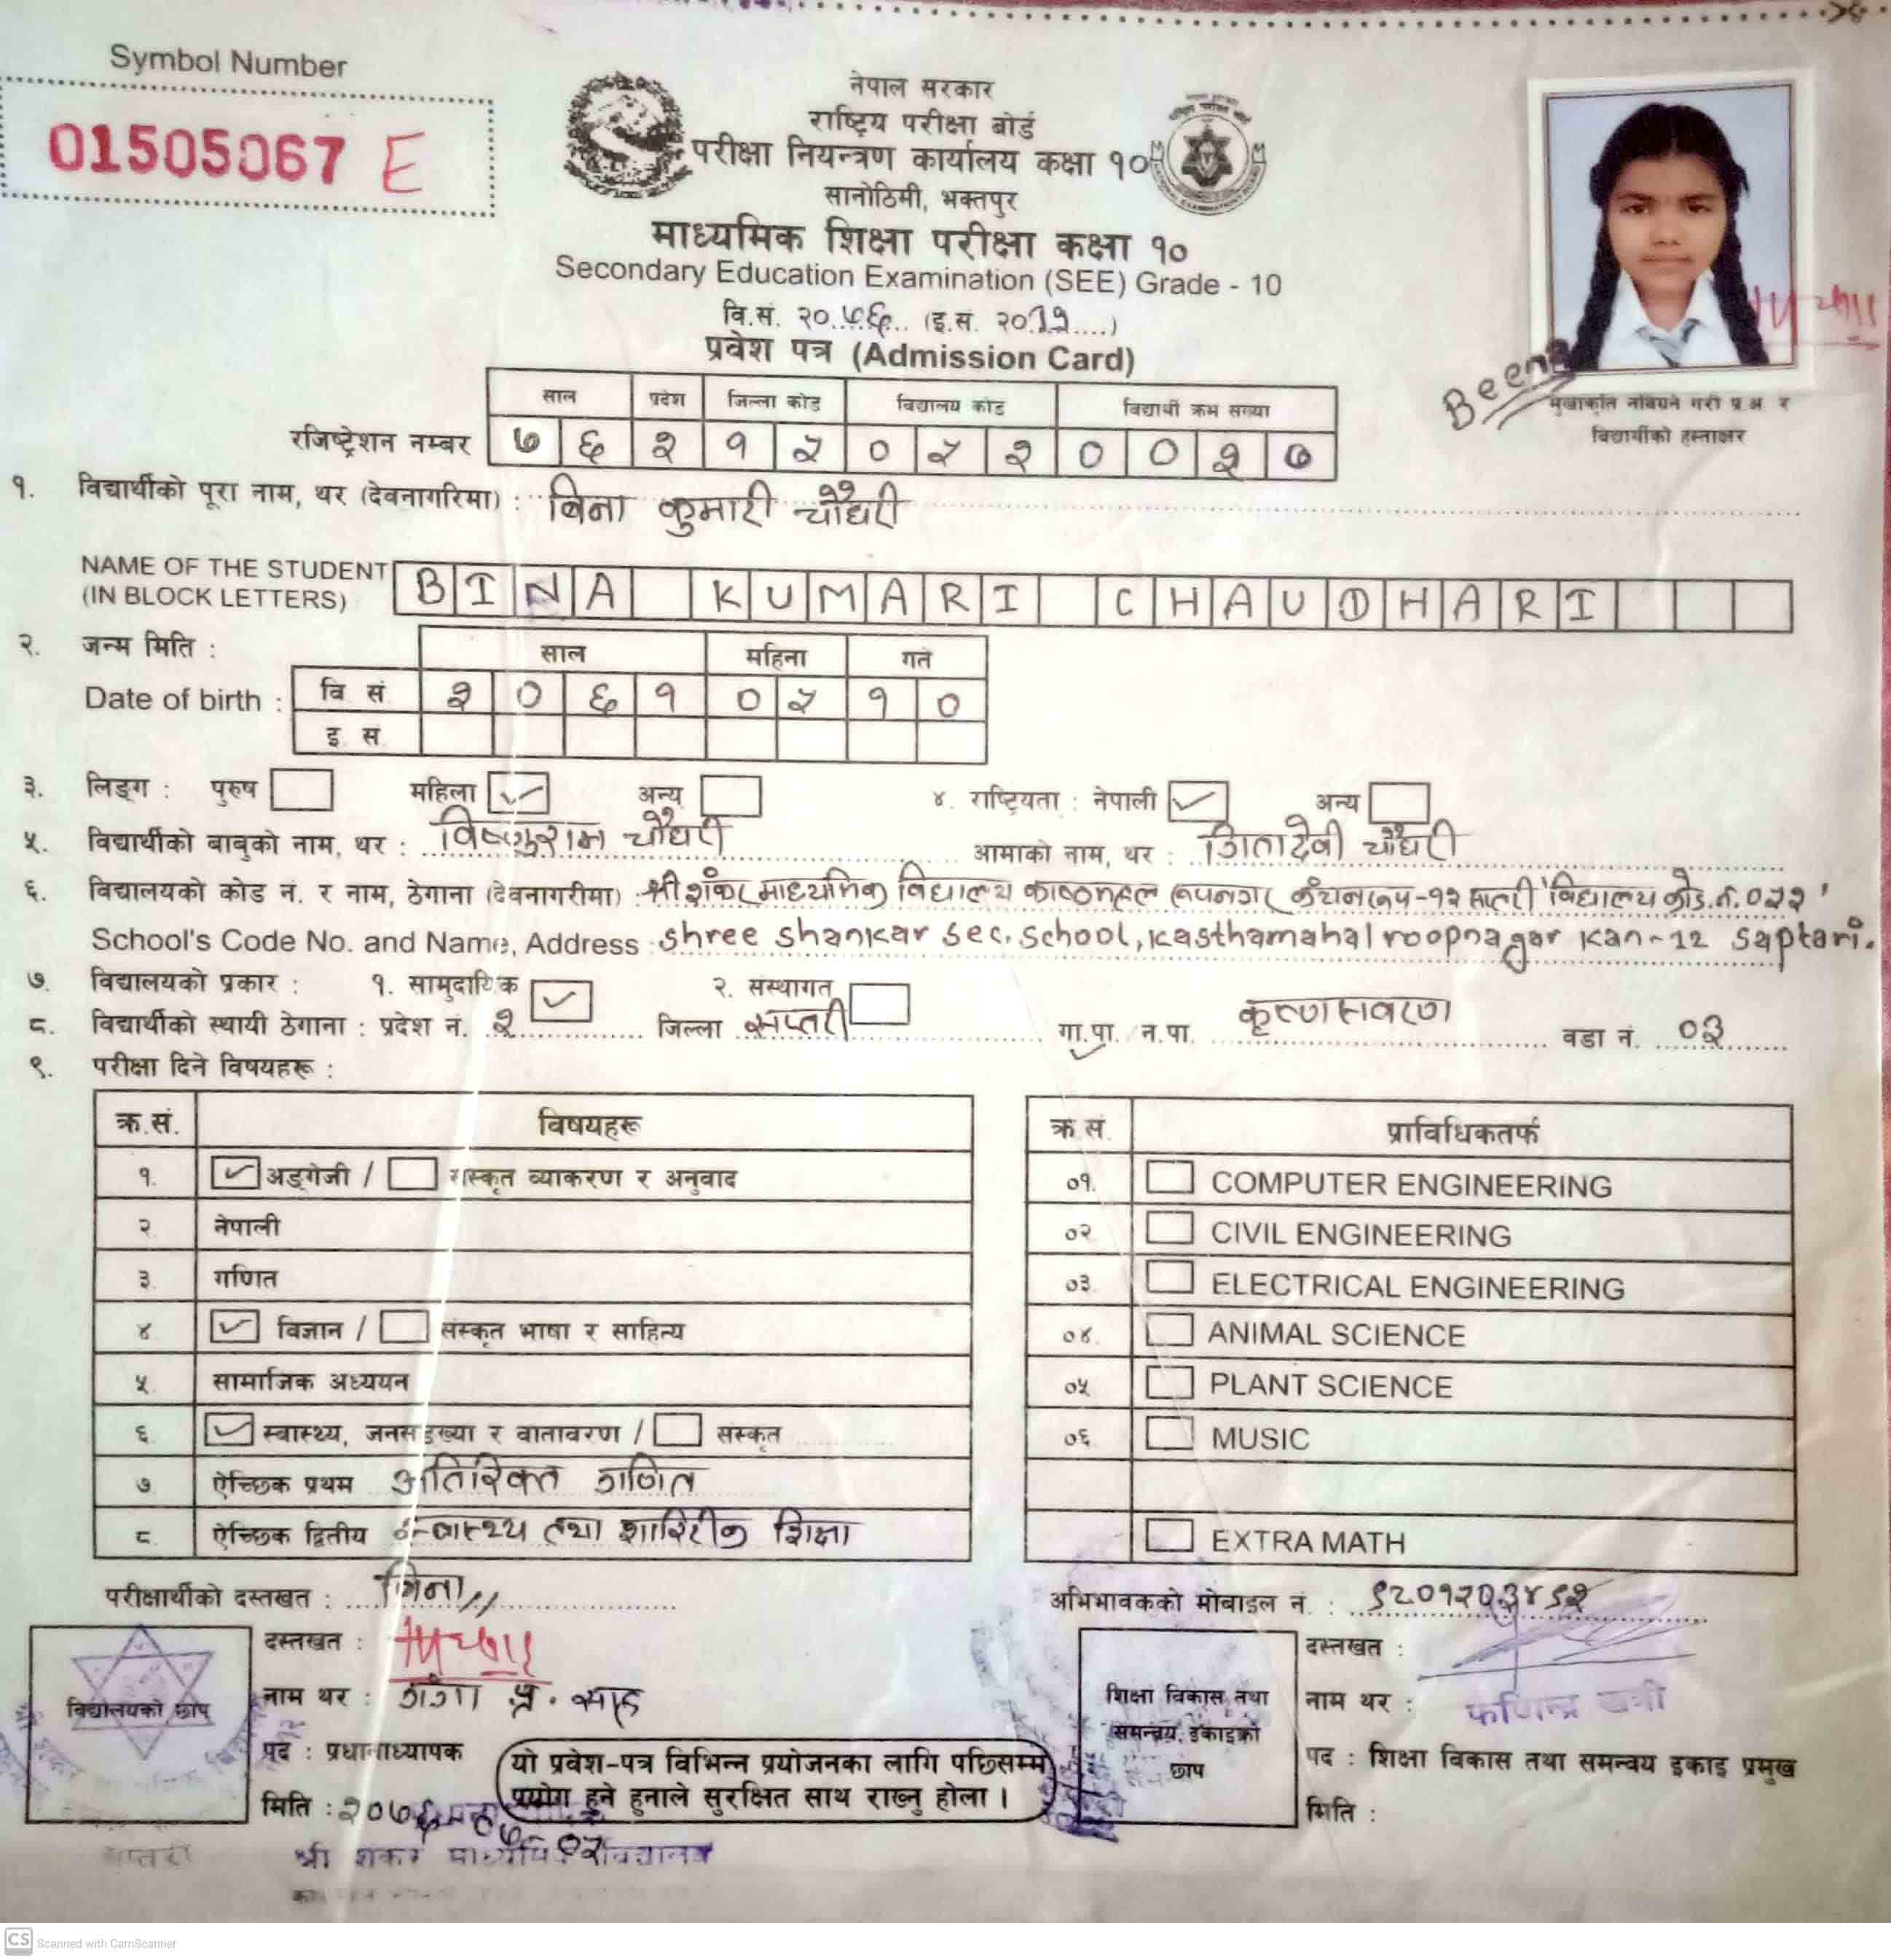 Symbol Number
01505067 E
नेपाल सरकार
राष्ट्रिय परीक्षा बोर्ड
परीक्षा नियन्त्रण कार्यालय कक्षा १०
सानोठिमी, भक्तपुर
माध्यमिक शिक्षा परीक्षा कक्षा १०
Secondary Education Examination (SEE) Grade - 10
वि.सं. २०७६ (इ.सं. २०१९)
प्रवेश पत्र (Admission Card)
Beena
मुखाकृति नबिग्रने गरी प्र.अ र
विद्यार्थीको हस्ताक्षर
साल प्रदेश जिल्ला कोड विद्यालय कोड विद्यार्थी क्रम संख्या
रजिष्ट्रेशन नम्बर ७ ६ २ १ ५ ० ५ २ ० ० २ ७
१. विद्यार्थीको पूरा नाम, थर (देवनागरिमा) : बिना कुमारी चौधरी
NAME OF THE STUDENT
(IN BLOCK LETTERS) BINA KUMARI CHAUDHARI
२. जन्म मिति : साल महिना गते
Date of birth : वि सं २ ० ६ १ ० ५ १ ०
इ. स
३. लिङ्ग : पुरुष महिला अन्य ४. राष्ट्रियता : नेपाली अन्य
५. विद्यार्थीको बाबुको नाम, थर : विष्णुराम चौधरी आमाको नाम, थर : गितादेवी चौधरी
६. विद्यालयको कोड नं. र नाम, ठेगाना (देवनागरीमा) श्री शंकर माध्यमिक विद्यालय काष्ठमहल रूपनगर कंचनरूप-१२ सप्तरी विद्यालय कोड नं. ०५२
School's Code No. and Name, Address : Shree Shankar Sec. School, Kasthamahal roopnagar Kan-12 Saptari.
७. विद्यालयको प्रकार : १. सामुदायिक २. संस्थागत
८. विद्यार्थीको स्थायी ठेगाना : प्रदेश नं. २ जिल्ला सप्तरी गा.पा. न.पा. कृष्णासवरण वडा नं. ०३
९. परीक्षा दिने विषयहरू :
क्र.सं. विषयहरू
१. अङ्ग्रेजी / संस्कृत व्याकरण र अनुवाद
२ नेपाली
३. गणित
४ विज्ञान / संस्कृत भाषा र साहित्य
५ सामाजिक अध्ययन
६ स्वास्थ्य, जनसङ्ख्या र वातावरण / संस्कृत
७ ऐच्छिक प्रथम अतिरिक्त गणित
८ ऐच्छिक द्वितीय स्वास्थ्य तथा शारिरीक शिक्षा
क्र सं. प्राविधिकतर्फ
०१. COMPUTER ENGINEERING
०२ CIVIL ENGINEERING
०३. ELECTRICAL ENGINEERING
०४. ANIMAL SCIENCE
०५ PLANT SCIENCE
०६ MUSIC
EXTRA MATH
परीक्षार्थीको दस्तखत : बिना
अभिभावकको मोबाइल नं. :
विद्यालयको छाप
दस्तखत :
नाम थर : गंगा प्र. साह
पद : प्रधानाध्यापक
मिति :
यो प्रवेश-पत्र विभिन्न प्रयोजनका लागि पछिसम्म
प्रयोग हुने हुनाले सुरक्षित साथ राख्नु होला ।
शिक्षा विकास तथा
समन्वय इकाइको
छाप
दस्तखत :
नाम थर : फणिन्द्र खत्री
पद : शिक्षा विकास तथा समन्वय इकाइ प्रमुख
मिति :
सप्तरी
श्री शंकर माध्यमिक विद्यालय
CS Scanned with CamScanner